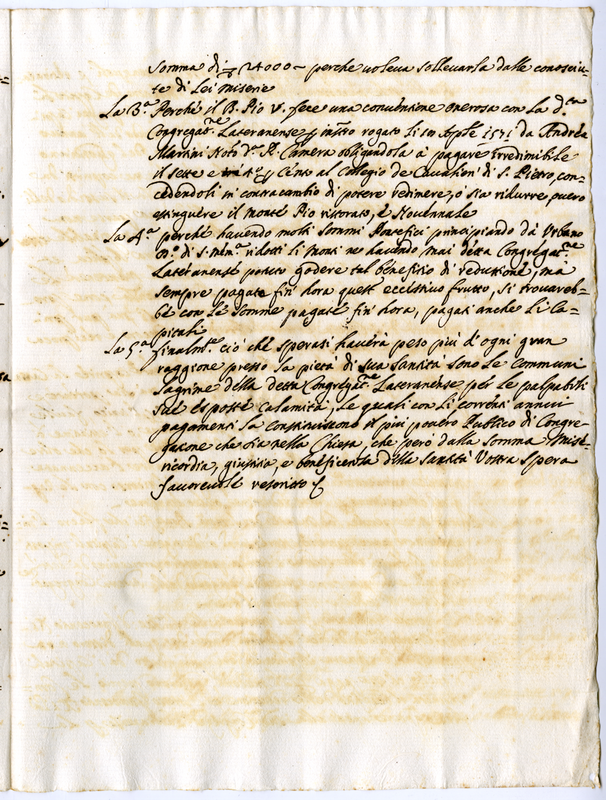 somma di 24000 – perche voleva sollevarla dalle conosciu=
te di Lei miserie
La 3.ª Perche il B. Pio V. fece una conventione onerosa con la d.ta
Congregat.ne Lateranense rogato li Aprle 1571 da Andrea
Martini Not.o d.a R. Camera obligandola à pagare irredimibile
il sette e cento al Collegio de Cavalieri di S. Pietro, con=
cedendoli in contracambio di potere redimere, ò sia ridurre overo
estinguere il Monte Pio ristorato, è Novennale
La 4.ª perche havendo molti sommi Pontefici principiando da Urbano
8.º di S. Mem.a ridotti li Monti ne havendo mai detta Congregat.ne
Lateranense potuto godere tal benefitio di reductione, ma
sempre pagato fin' hora quest' eccessivo frutto, si trovareb=
be con le somme pagate fin' hora, pagati anche li Ca=
pitali
La 5.ª finalm.te ciò che sperasi haverà peso più d'ogni gran
raggione presso la pietà di sua Santità sono le communi
lagrime della detta Congregat.ne Lateranense per le palpabili
sue esposte calamità, le quali con li correnti annui
pagamenti la constituiscono il più povero Publico di Congre=
gatione che sia nella Chiesa, che però dalla somma Mise=
ricordia, giustitia, e beneficenza della Santità Vostra spera
favorevole rescritto